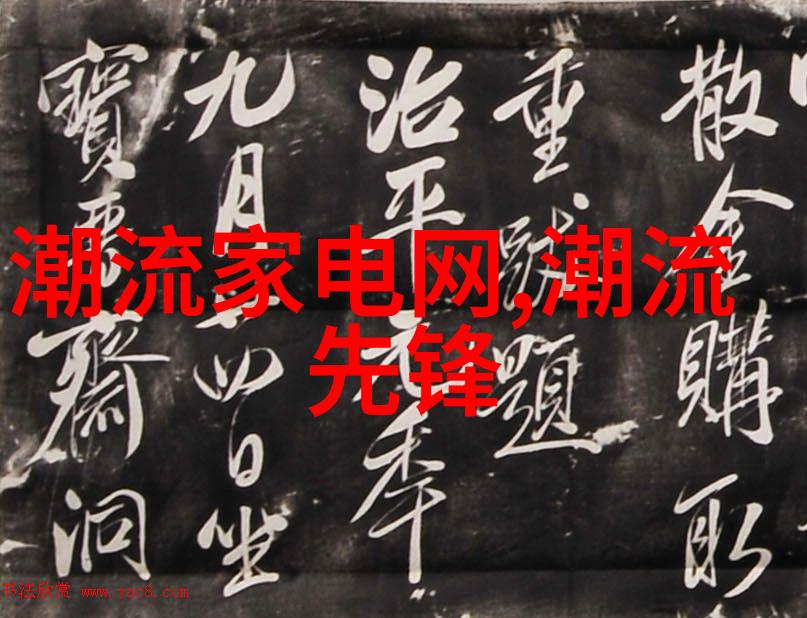 潮流家电网,潮流
先锋
散金購取
重跋題
治平元年
九月廿四日坐
寶齋洞
书法欣赏 www.yac8.com